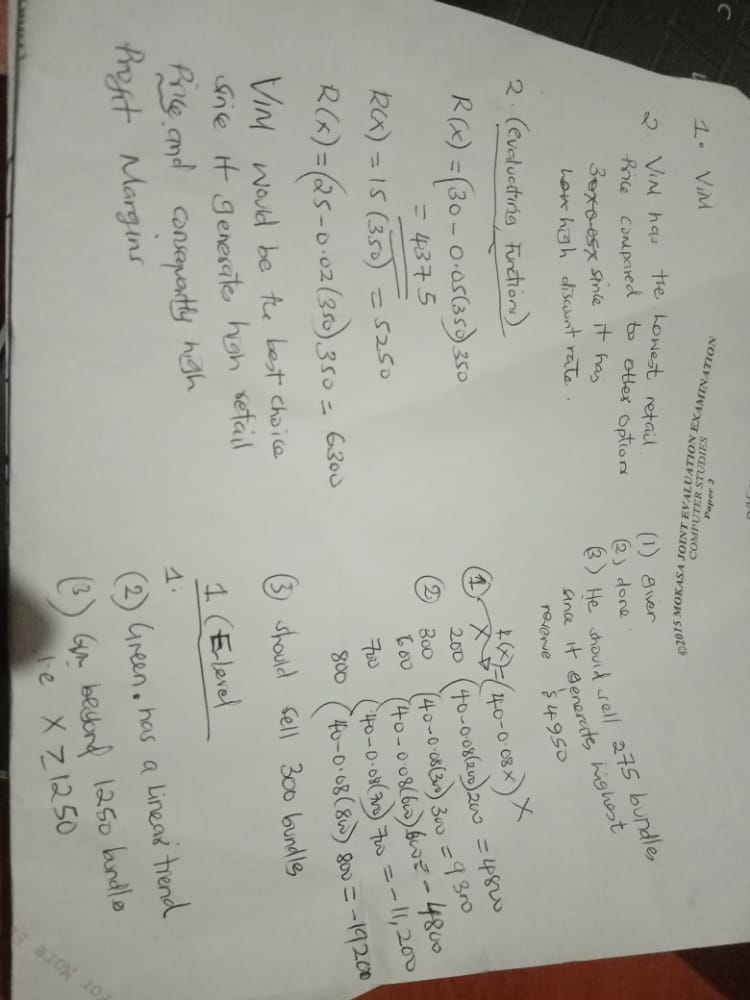 ©2015 MOKASA JOINT EVALUATION EXAMINATION
COMPUTER STUDIES
Paper 2
1. VIM
2. VIM has the lowest retail
Price compared to other option
since it has
high discount rate.
2. (evaluating Functions)
R(x) = (30 - 0.05(350) 350
= 4375
R(x) = 15 (350) = 5250
R(x) = (25 - 0.02(350) 350 = 6300
VIM would be the best choice
since it generates high retail
Price and consequently high
Profit Margins
(1) given
(2) done.
(3) He should sell 275 bundles
since it generates highest
revenue $4950
① X R(x) = (40 - 0.08x) X
200 (40 - 0.08(200) 200 = 4800
② 300 (40 - 0.08(300) 300 = 9300
600 (40 - 0.08(600) 600 = - 4800
700 (40 - 0.08(700) 700 = - 11,200
800 (40 - 0.08(800) 800 = - 19200
③ should sell 300 bundles
1 (E-level
1:
(2) Green. has a linear trend
(3) beyond 1250 bundles
i.e X ≥ 1250
For More